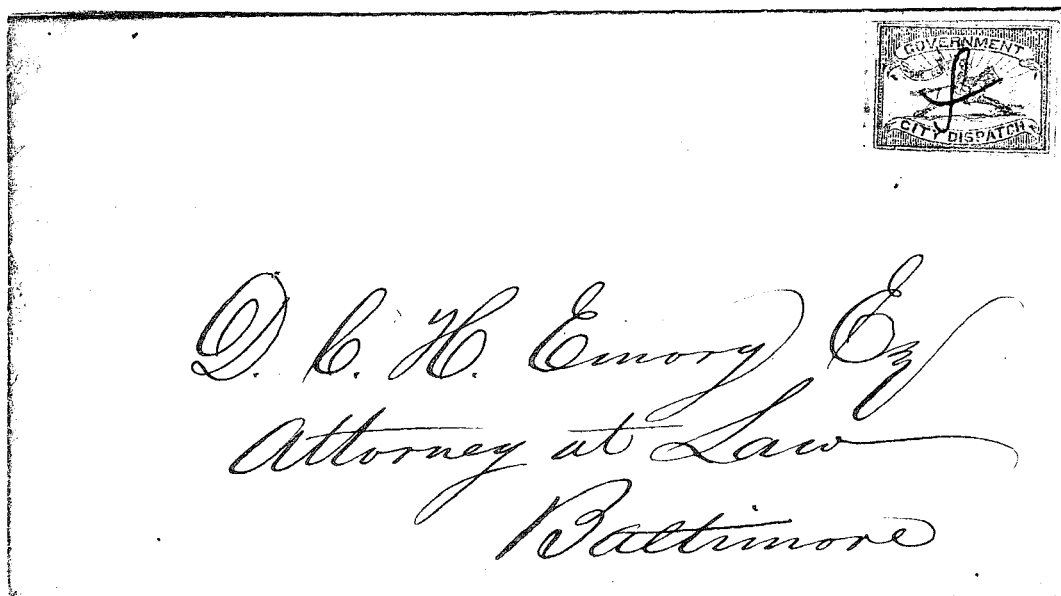 GOVERNMENT
CITY DISPATCH
D. C. H. Emory Esq
Attorney at Law
Baltimore